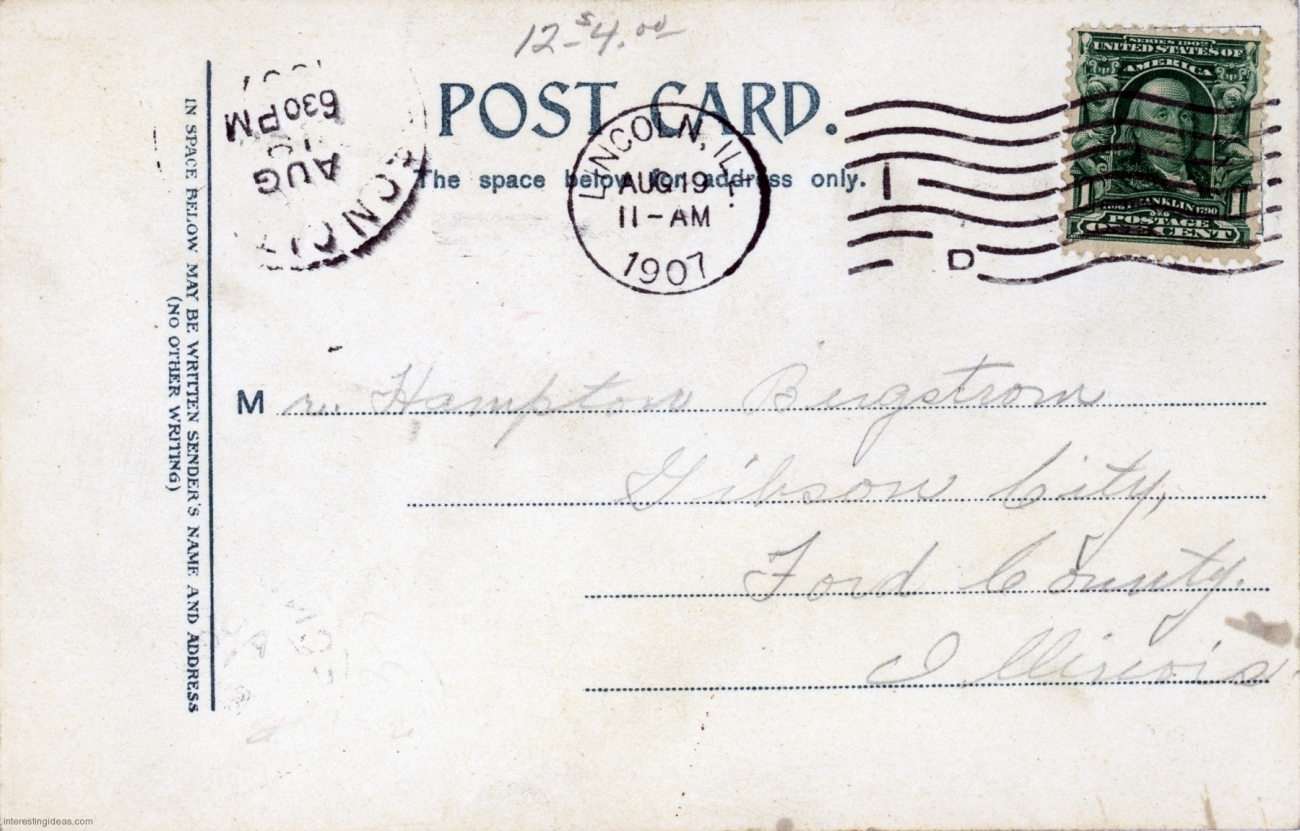 12-$4.00
SERIES 1902
UNITED STATES OF
AMERICA
POST CARD.
The space below for address only.
LINCOLN, ILL.
AUG 19
11-AM
1907
1
D
FRANKLIN
POSTAGE
ONE CENT
AUG
630PM
1907
IN SPACE BELOW MAY BE WRITTEN SENDER'S NAME AND ADDRESS
(NO OTHER WRITING)
Mr. Hampton Bergstrom
Gibson City,
Ford County.
Illinois.
interestingideas.com